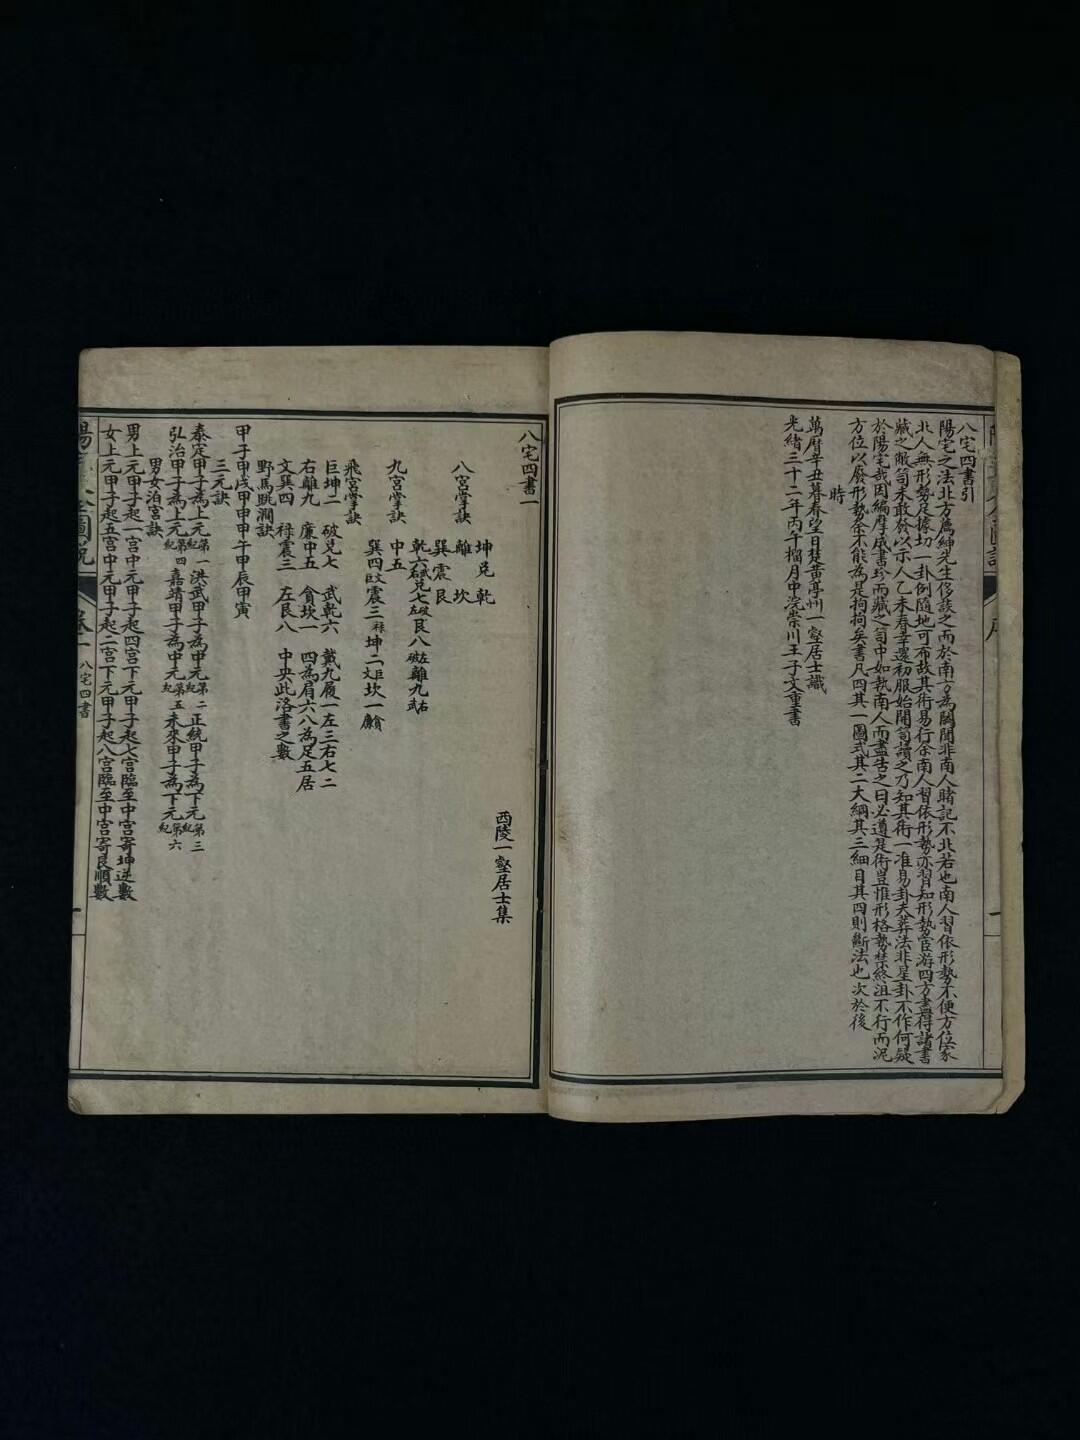 八宅四書引
陽宅之法北方薦紳先生侈談之而於南方為闊闊非南人賭記不北若也南人習依形勢不便方位家
北人無形勢足據切一卦例隨地可布故其術易行余南人習依形勢亦習知形勢宦游四方盡得諸書
藏之敝笥未敢發以示人乙未春幸還初服始開笥讀之乃知其術一准易卦夫葬法非星卦不作何疑
於陽宅哉因編摩成書珍而藏之笥中如執南人而盡告之曰必道是術豈惟形格勢禁終沮不行而泥
方位以廢形勢余不能為是拘拘矣書凡四其一圖式其二大綱其三細目其四則斷法也次於後
時
萬曆辛丑暮春望日楚黃亭州一壑居士識
光緒三十二年丙午榴月中浣崇川王子文重書
八宅四書一
西陵一壑居士集
坤兌乾
八宮掌訣 離 坎
巽震艮
乾六武兌七破艮八左輔離九右弼
九宮掌訣 中五
巽四文震三祿坤二巨坎一貪
飛宮掌訣
巨坤二 破兌七 武乾六 戴九履一左三右七二
右離九 廉中五 貪坎一 四為肩六八為足五居
文巽四 祿震三 左艮八 中央此洛書之數
野馬跳澗訣
甲子甲戌甲申甲午甲辰甲寅
三元訣
泰定甲子為上元第一紀洪武甲子為中元第二紀正統甲子為下元第三紀
弘治甲子為上元第四紀嘉靖甲子為中元第五紀未來甲子為下元第六紀
男女泊宮訣
男上元甲子起一宮中元甲子起四宮下元甲子起七宮臨至中宮寄坤逆數
女上元甲子起五宮中元甲子起二宮下元甲子起八宮臨至中宮寄艮順數
全圖說 卷一 八宅四書